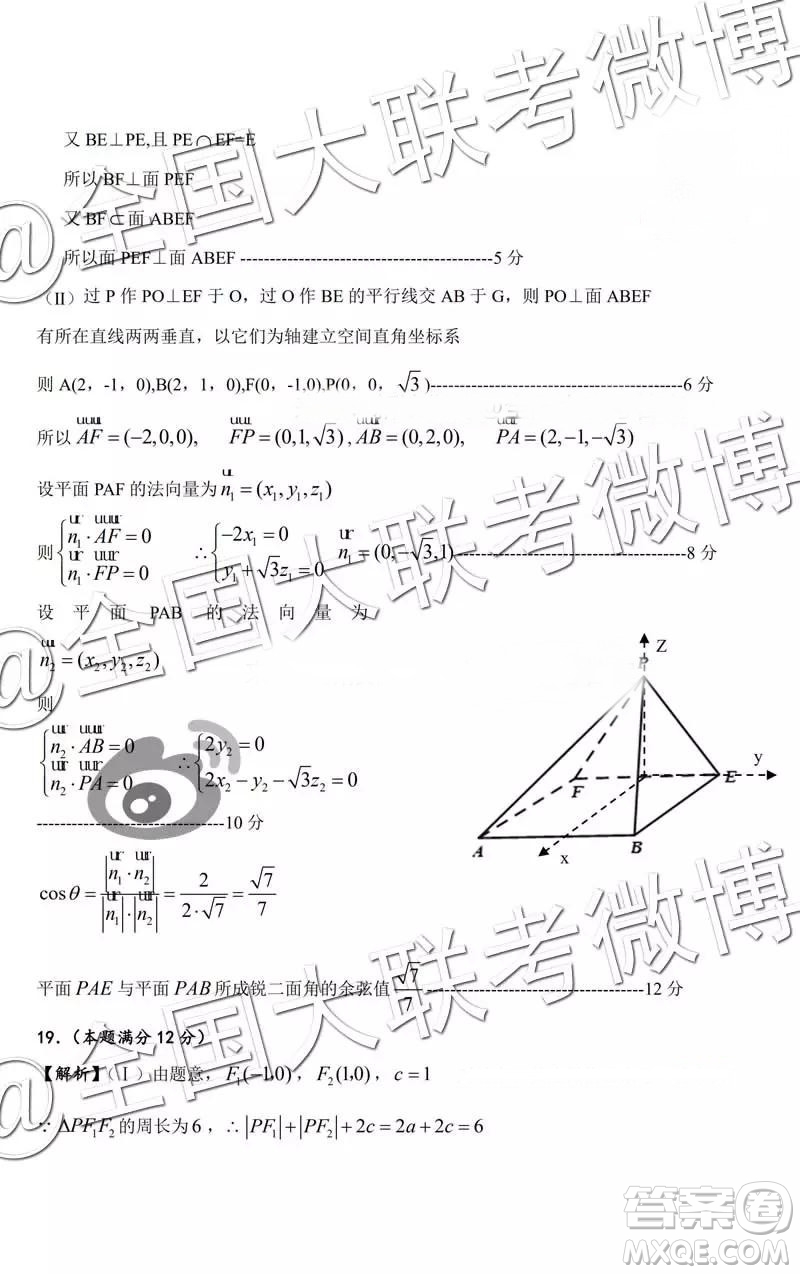 又 BE⊥PE,且 PE∩EF=E
所以 BF⊥面 PEF
又 BF⊂面 ABEF
所以面 PEF⊥面 ABEF -------------------------------------------5 分
（II）过 P 作 PO⊥EF 于 O，过 O 作 BE 的平行线交 AB 于 G，则 PO⊥面 ABEF
有所在直线两两垂直，以它们为轴建立空间直角坐标系
则 A(2，-1，0),B(2，1，0),F(0，-1,0),P(0，0，√3)-------------------------------------------6 分
所以 AF=(−2,0,0), FP=(0,1,√3), AB=(0,2,0), PA=(2,−1,−√3)
设平面 PAF 的法向量为 n₁=(x₁,y₁,z₁)
则 {n₁·AF=0 n₁·FP=0 ∴{−2x₁=0 y₁+√3z₁=0 n₁=(0,−√3,1)---------------------------------------8 分
设 平 面 PAB 的 法 向 量 为
n₂=(x₂,y₂,z₂)
则
{n₂·AB=0 n₂·PA=0 ∴{2y₂=0 2x₂−y₂−√3z₂=0
--------------------------------10 分
cosθ=|n₁·n₂|/(|n₁|·|n₂|)=2/(2·√7)=√7/7
平面 PAE 与平面 PAB 所成锐二面角的余弦值 √7/7 -------------------------------------12 分
19．（本题满分 12 分）
【解析】（Ⅰ）由题意，F₁(−1,0)，F₂(1,0)，c=1
∵ΔPF₁F₂的周长为6，∴|PF₁|+|PF₂|+2c=2a+2c=6
Z
P
y
F
E
A
x
B
@全国大联考微博
@全国大联考微博
@全国大联考微博
答案卷
MXQE.COM